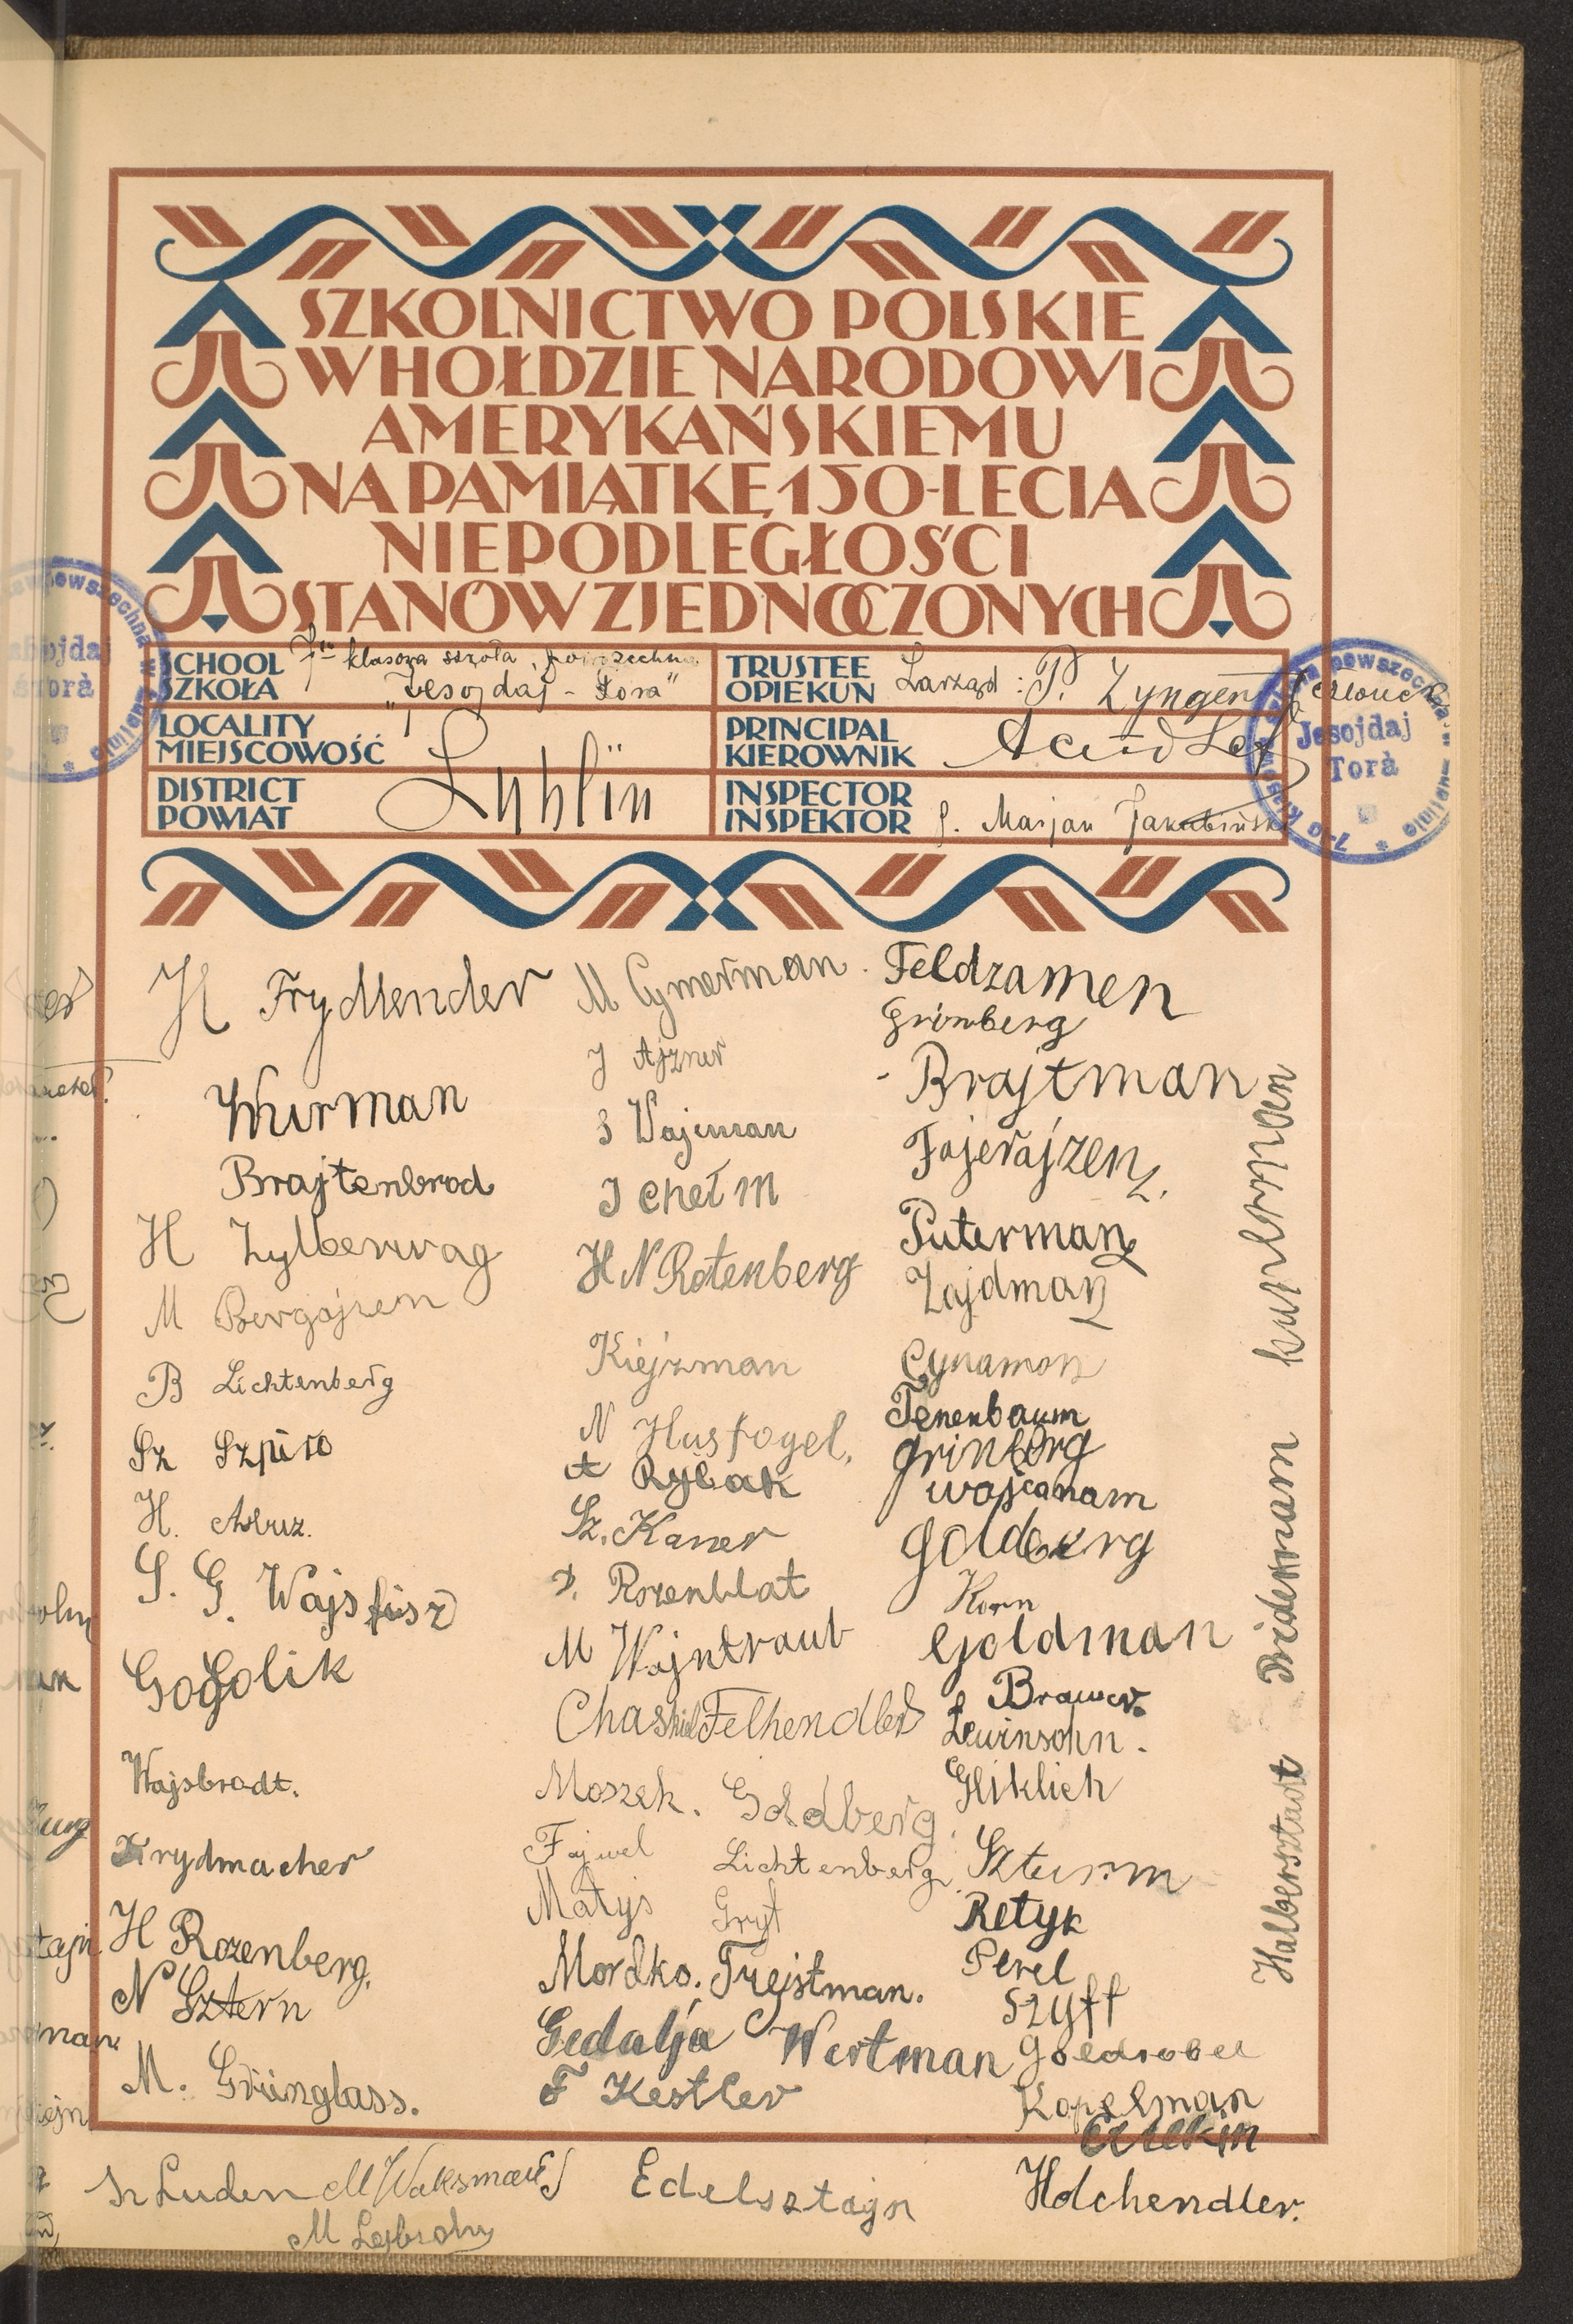 SZKOLNICTWO POLSKIE
W HOŁDZIE NARODOWI
AMERYKAŃSKIEMU
NA PAMIĄTKĘ 150-LECIA
NIEPODLEGŁOŚCI
STANÓW ZJEDNOCZONYCH
SCHOOL
SZKOŁA
klasowa szkoła powszechna
"Jesojdaj - Tora"
TRUSTEE
OPIEKUN
Zarząd: P. Zyngen
LOCALITY
MIEJSCOWOŚĆ
PRINCIPAL
KIEROWNIK
DISTRICT
POWIAT
Lublin
INSPECTOR
INSPEKTOR
Marjan Jakubiński
Jesojdaj
Tora
H Frydlender
Wurman
Brajtenbrod
H Zylberwag
M Bergajzen
B Lichtenberg
Sz Szpiro
H.
S. G. Wajsfisz
Gogolik
Wajsbrodt.
Frydmacher
H Rozenberg.
N Sztern
M. Grünglass.
M Cymerman
J Ajzner
S Wajcman
J Chełm
H N Rotenberg
Kiejzman
N Husfogel.
A Rybak
Sz. Kaner
D. Rozenblat
M Wajntraub
Chaskiel Felhendler
Moszek. Goldberg.
Fajwel Lichtenberg
Matys Gryf
Mordko. Trejstman.
Gedalja Wertman
F Kestler
Feldzamen
Grinberg
- Brajtman
Fajerajzen
Puterman
Zajdman
Cynamon
Tenenbaum
Grinberg
Goldberg
Korn
Goldman
Brawer.
Lewinsohn.
Gliklich
Szturm
Retyk
Perel
Szyff
Goldsobel
Kopelman
Holchendler.
Halbersztadt Biderman kulerman
Sz Luden M Waksman
M Lejbzohn
Edelsztajn